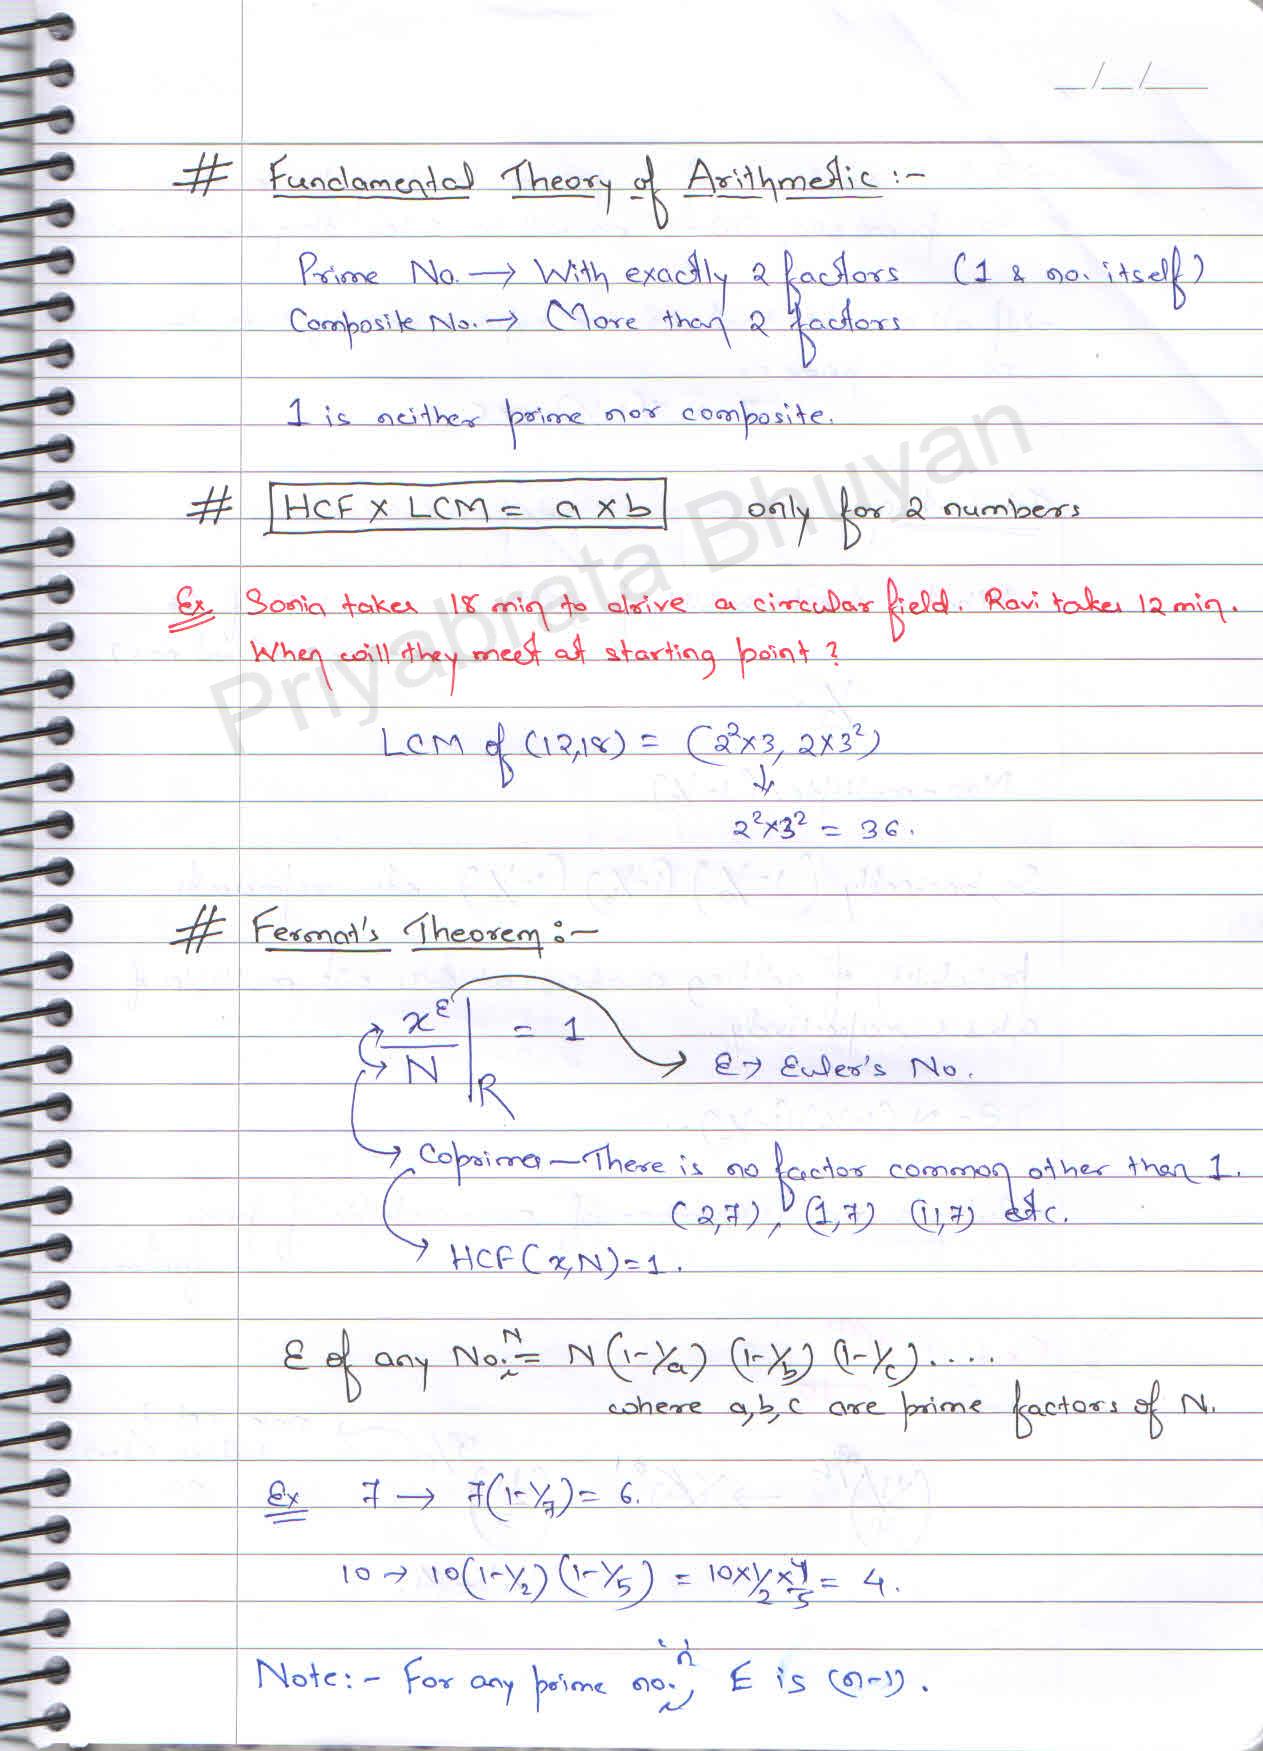 __/__/____
# Fundamental Theory of Arithmetic :-
Prime No. → With exactly 2 factors (1 & no. itself)
Composite No. → More than 2 factors
1 is neither prime nor composite.
# HCF × LCM = a × b only for 2 numbers
Ex Sonia takes 18 min to drive a circular field. Ravi takes 12 min.
When will they meet at starting point?
Priyabrata Bhuyan
LCM of (12,18) = (2²×3, 2×3²)
↓
2²×3² = 36.
# Fermat's Theorem :-
x^E / N |R = 1
E → Euler's No.
→ Coprimes – There is no factor common other than 1.
(2,7), (1,7) (11,7) etc.
→ HCF (x,N) = 1.
E of any No. N = N(1-1/a) (1-1/b) (1-1/c) .....
where a,b,c are prime factors of N.
Ex 7 → 7(1-1/7) = 6.
10 → 10(1-1/2) (1-1/5) = 10×1/2×4/5 = 4.
Note:- For any prime no. 'n', E is (n-1).